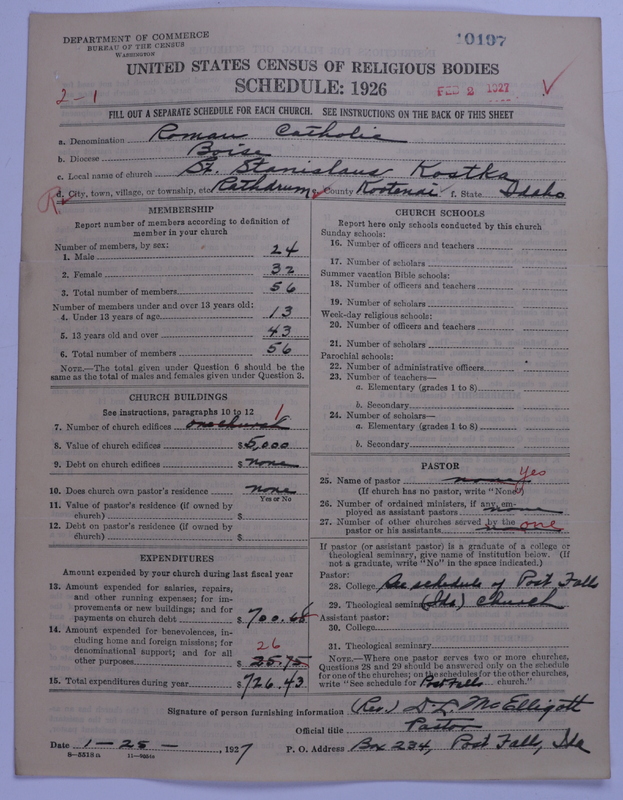 DEPARTMENT OF COMMERCE
BUREAU OF THE CENSUS
WASHINGTON
10197
UNITED STATES CENSUS OF RELIGIOUS BODIES
SCHEDULE: 1926
FEB 2 1927
2-1
FILL OUT A SEPARATE SCHEDULE FOR EACH CHURCH. SEE INSTRUCTIONS ON THE BACK OF THIS SHEET
a. Denomination Roman Catholic
b. Diocese Boise
c. Local name of church St. Stanislaus Kostka
d. City, town, village, or township, etc. Rathdrum e. County Kootenai f. State Idaho
R
MEMBERSHIP
Report number of members according to definition of
member in your church
Number of members, by sex:
1. Male 24
2. Female 32
3. Total number of members 56
Number of members under and over 13 years old:
4. Under 13 years of age 13
5. 13 years old and over 43
6. Total number of members 56
NOTE.—The total given under Question 6 should be the
same as the total of males and females given under Question 3.
CHURCH BUILDINGS
See instructions, paragraphs 10 to 12
7. Number of church edifices one church 1
8. Value of church edifices $5,000
9. Debt on church edifices $none
10. Does church own pastor's residence none
Yes or No
11. Value of pastor's residence (if owned by
church) $
12. Debt on pastor's residence (if owned by
church) $
EXPENDITURES
Amount expended by your church during last fiscal year
13. Amount expended for salaries, repairs,
and other running expenses; for im-
provements or new buildings; and for
payments on church debt $700.68
14. Amount expended for benevolences, in-
cluding home and foreign missions; for
denominational support; and for all
other purposes $25.75 26
15. Total expenditures during year $726.43
CHURCH SCHOOLS
Report here only schools conducted by this church
Sunday schools:
16. Number of officers and teachers
17. Number of scholars
Summer vacation Bible schools:
18. Number of officers and teachers
19. Number of scholars
Week-day religious schools:
20. Number of officers and teachers
21. Number of scholars
Parochial schools:
22. Number of administrative officers
23. Number of teachers—
a. Elementary (grades 1 to 8)
b. Secondary
24. Number of scholars—
a. Elementary (grades 1 to 8)
b. Secondary
PASTOR
25. Name of pastor none yes
(If church has no pastor, write "None")
26. Number of ordained ministers, if any, em-
ployed as assistant pastors none
27. Number of other churches served by the
pastor or his assistants one
If pastor (or assistant pastor) is a graduate of a college or
theological seminary, give name of institution below. (If
not a graduate, write "No" in the space indicated.)
Pastor:
28. College See schedule of Post Falls
29. Theological seminary (Ida.) Church
Assistant pastor:
30. College
31. Theological seminary
NOTE.—Where one pastor serves two or more churches,
Questions 28 and 29 should be answered only on the schedule
for one of the churches; on the schedules for the other churches,
write "See schedule for Post Falls church."
Signature of person furnishing information (Rev.) D. L. McElligott
Official title Pastor
Date 1-25-, 1927 P. O. Address Box 234, Post Falls, Ida
8-5518a